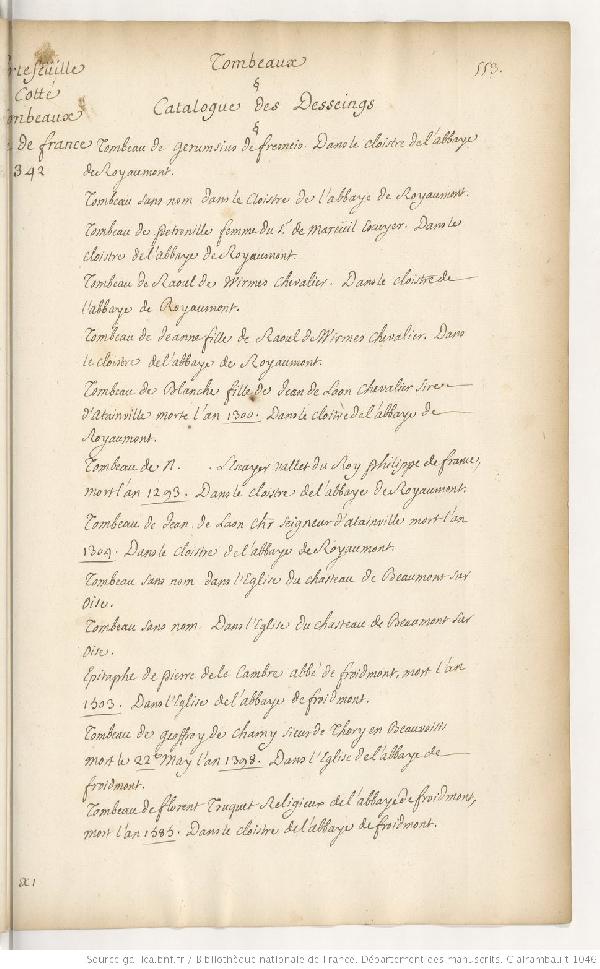 Tombeaux
113.
&
Catalogue des Desseings
&
Cotté
de france
342
Tombeau de gerumsius de fremeio. Dans le cloistre de l'abbaye
de Royaumont.
Tombeau sans nom dans le Cloistre de l'abbaye de Royaumont.
Tombeau de petronille femme du Sr. de Mareuil Escuyer. Dans le
cloistre de l'abbaye de Royaumont.
Tombeau de Raoul de Wirmes Chevalier. Dans le cloistre de
l'abbaye de Royaumont.
Tombeau de Jeanne fille de Raoul de Wirmes Chevalier. Dans
le cloistre de l'abbaye de Royaumont.
Tombeau de Blanche fille de Jean de Laon Chevalier sire
d'Atainville morte l'an 1300. Dans le cloistre de l'abbaye de
Royaumont.
Tombeau de N. . Escuyer vallet du Roy philippe de france,
mort l'an 1293. Dans le cloistre de l'abbaye de Royaumont.
Tombeau de Jean de Laon chr seigneur d'atainville mort l'an
1304. Dans le cloistre de l'abbaye de Royaumont.
Tombeau sans nom dans l'Eglise du chasteau de Beaumont sur
Oise.
Tombeau sans nom. Dans l'Eglise du chasteau de Beaumont sur
Oise.
Epitaphe de pierre de le Cambre abbé de froidmont, mort l'an
1303. Dans l'Eglise de l'abbaye de froidmont.
Tombeau de geoffroy de charny sieur de Thory en Beauvoisis
mort le 22e May l'an 1398. Dans l'Eglise de l'abbaye de
froidmont.
Tombeau de florent Truquet Religieux de l'abbaye de froidmont,
mort l'an 1585. Dans le cloistre de l'abbaye de froidmont.
Source gallica.bnf.fr / Bibliothèque nationale de France. Département des manuscrits. Clairambault 1046